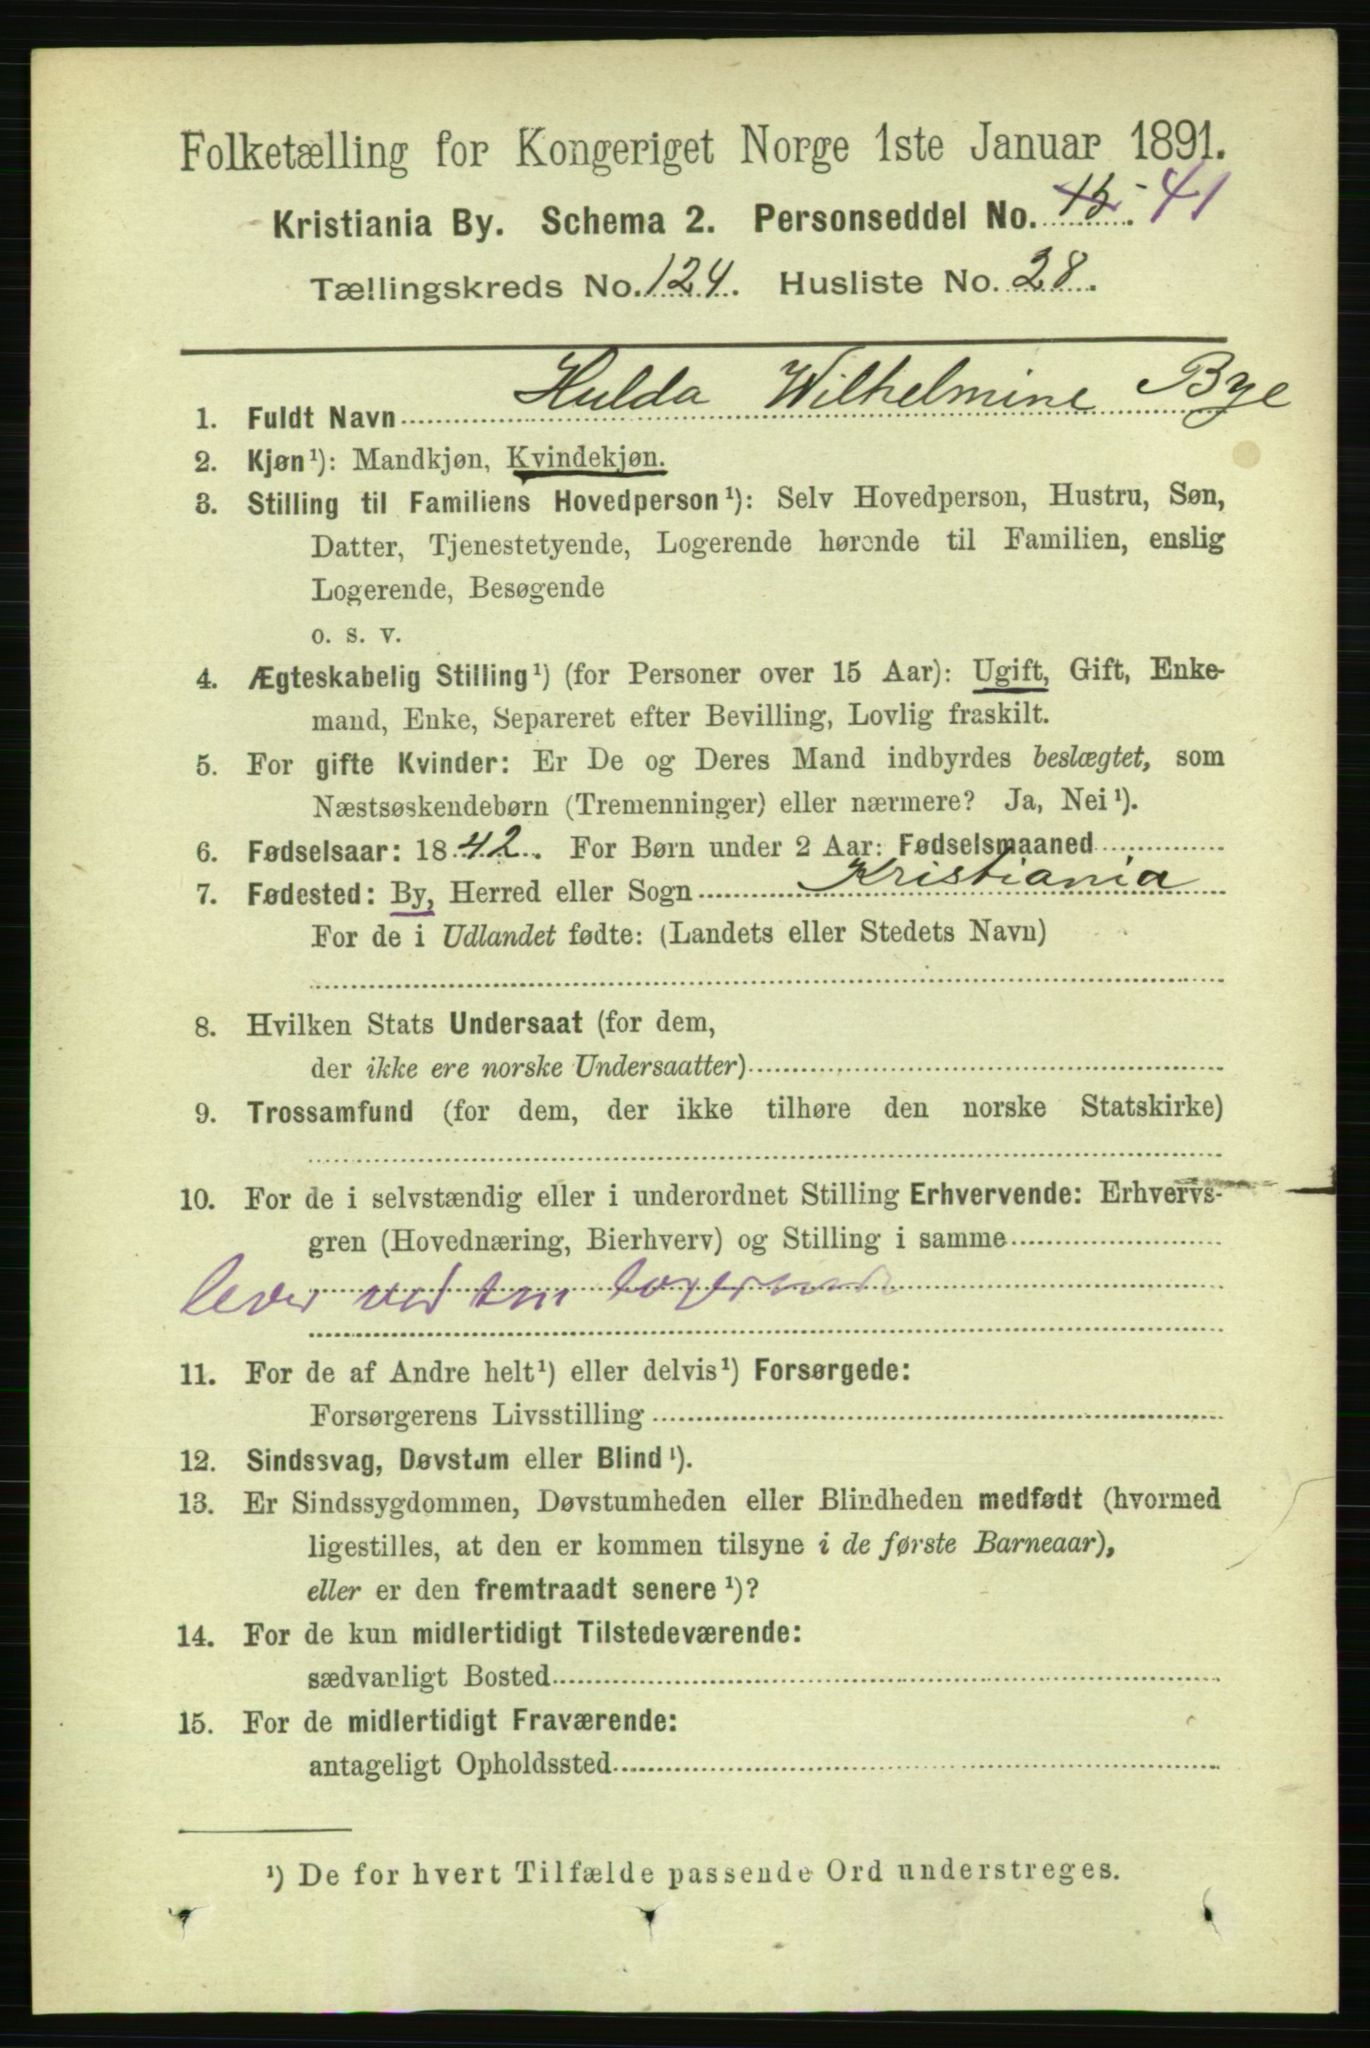 Folketælling for Kongeriget Norge 1ste Januar 1891.
Kristiania By. Schema 2. Personseddel No. 15. 41
Tællingskreds No. 124. Husliste No. 28.
1. Fuldt Navn Hulda Wilhelmine Bye
2. Kjøn¹): Mandkjøn, Kvindekjøn.
3. Stilling til Familiens Hovedperson¹): Selv Hovedperson, Hustru, Søn,
Datter, Tjenestetyende, Logerende hørende til Familien, enslig
Logerende, Besøgende
o. s. v.
4. Ægteskabelig Stilling¹) (for Personer over 15 Aar): Ugift, Gift, Enke-
mand, Enke, Separeret efter Bevilling, Lovlig fraskilt.
5. For gifte Kvinder: Er De og Deres Mand indbyrdes beslægtet, som
Næstsøskendebørn (Tremenninger) eller nærmere? Ja, Nei¹).
6. Fødselsaar: 1842. For Børn under 2 Aar: Fødselsmaaned
7. Fødested: By, Herred eller Sogn Kristiania
For de i Udlandet fødte: (Landets eller Stedets Navn)
8. Hvilken Stats Undersaat (for dem,
der ikke ere norske Undersaatter)
9. Trossamfund (for dem, der ikke tilhøre den norske Statskirke)
10. For de i selvstændig eller i underordnet Stilling Erhvervende: Erhvervs-
gren (Hovednæring, Bierhverv) og Stilling i samme
lever ved
11. For de af Andre helt¹) eller delvis¹) Forsørgede:
Forsørgerens Livsstilling
12. Sindssvag, Døvstum eller Blind¹).
13. Er Sindssygdommen, Døvstumheden eller Blindheden medfødt (hvormed
ligestilles, at den er kommen tilsyne i de første Barneaar),
eller er den fremtraadt senere¹)?
14. For de kun midlertidigt Tilstedeværende:
sædvanligt Bosted
15. For de midlertidigt Fraværende:
antageligt Opholdssted
¹) De for hvert Tilfælde passende Ord understreges.